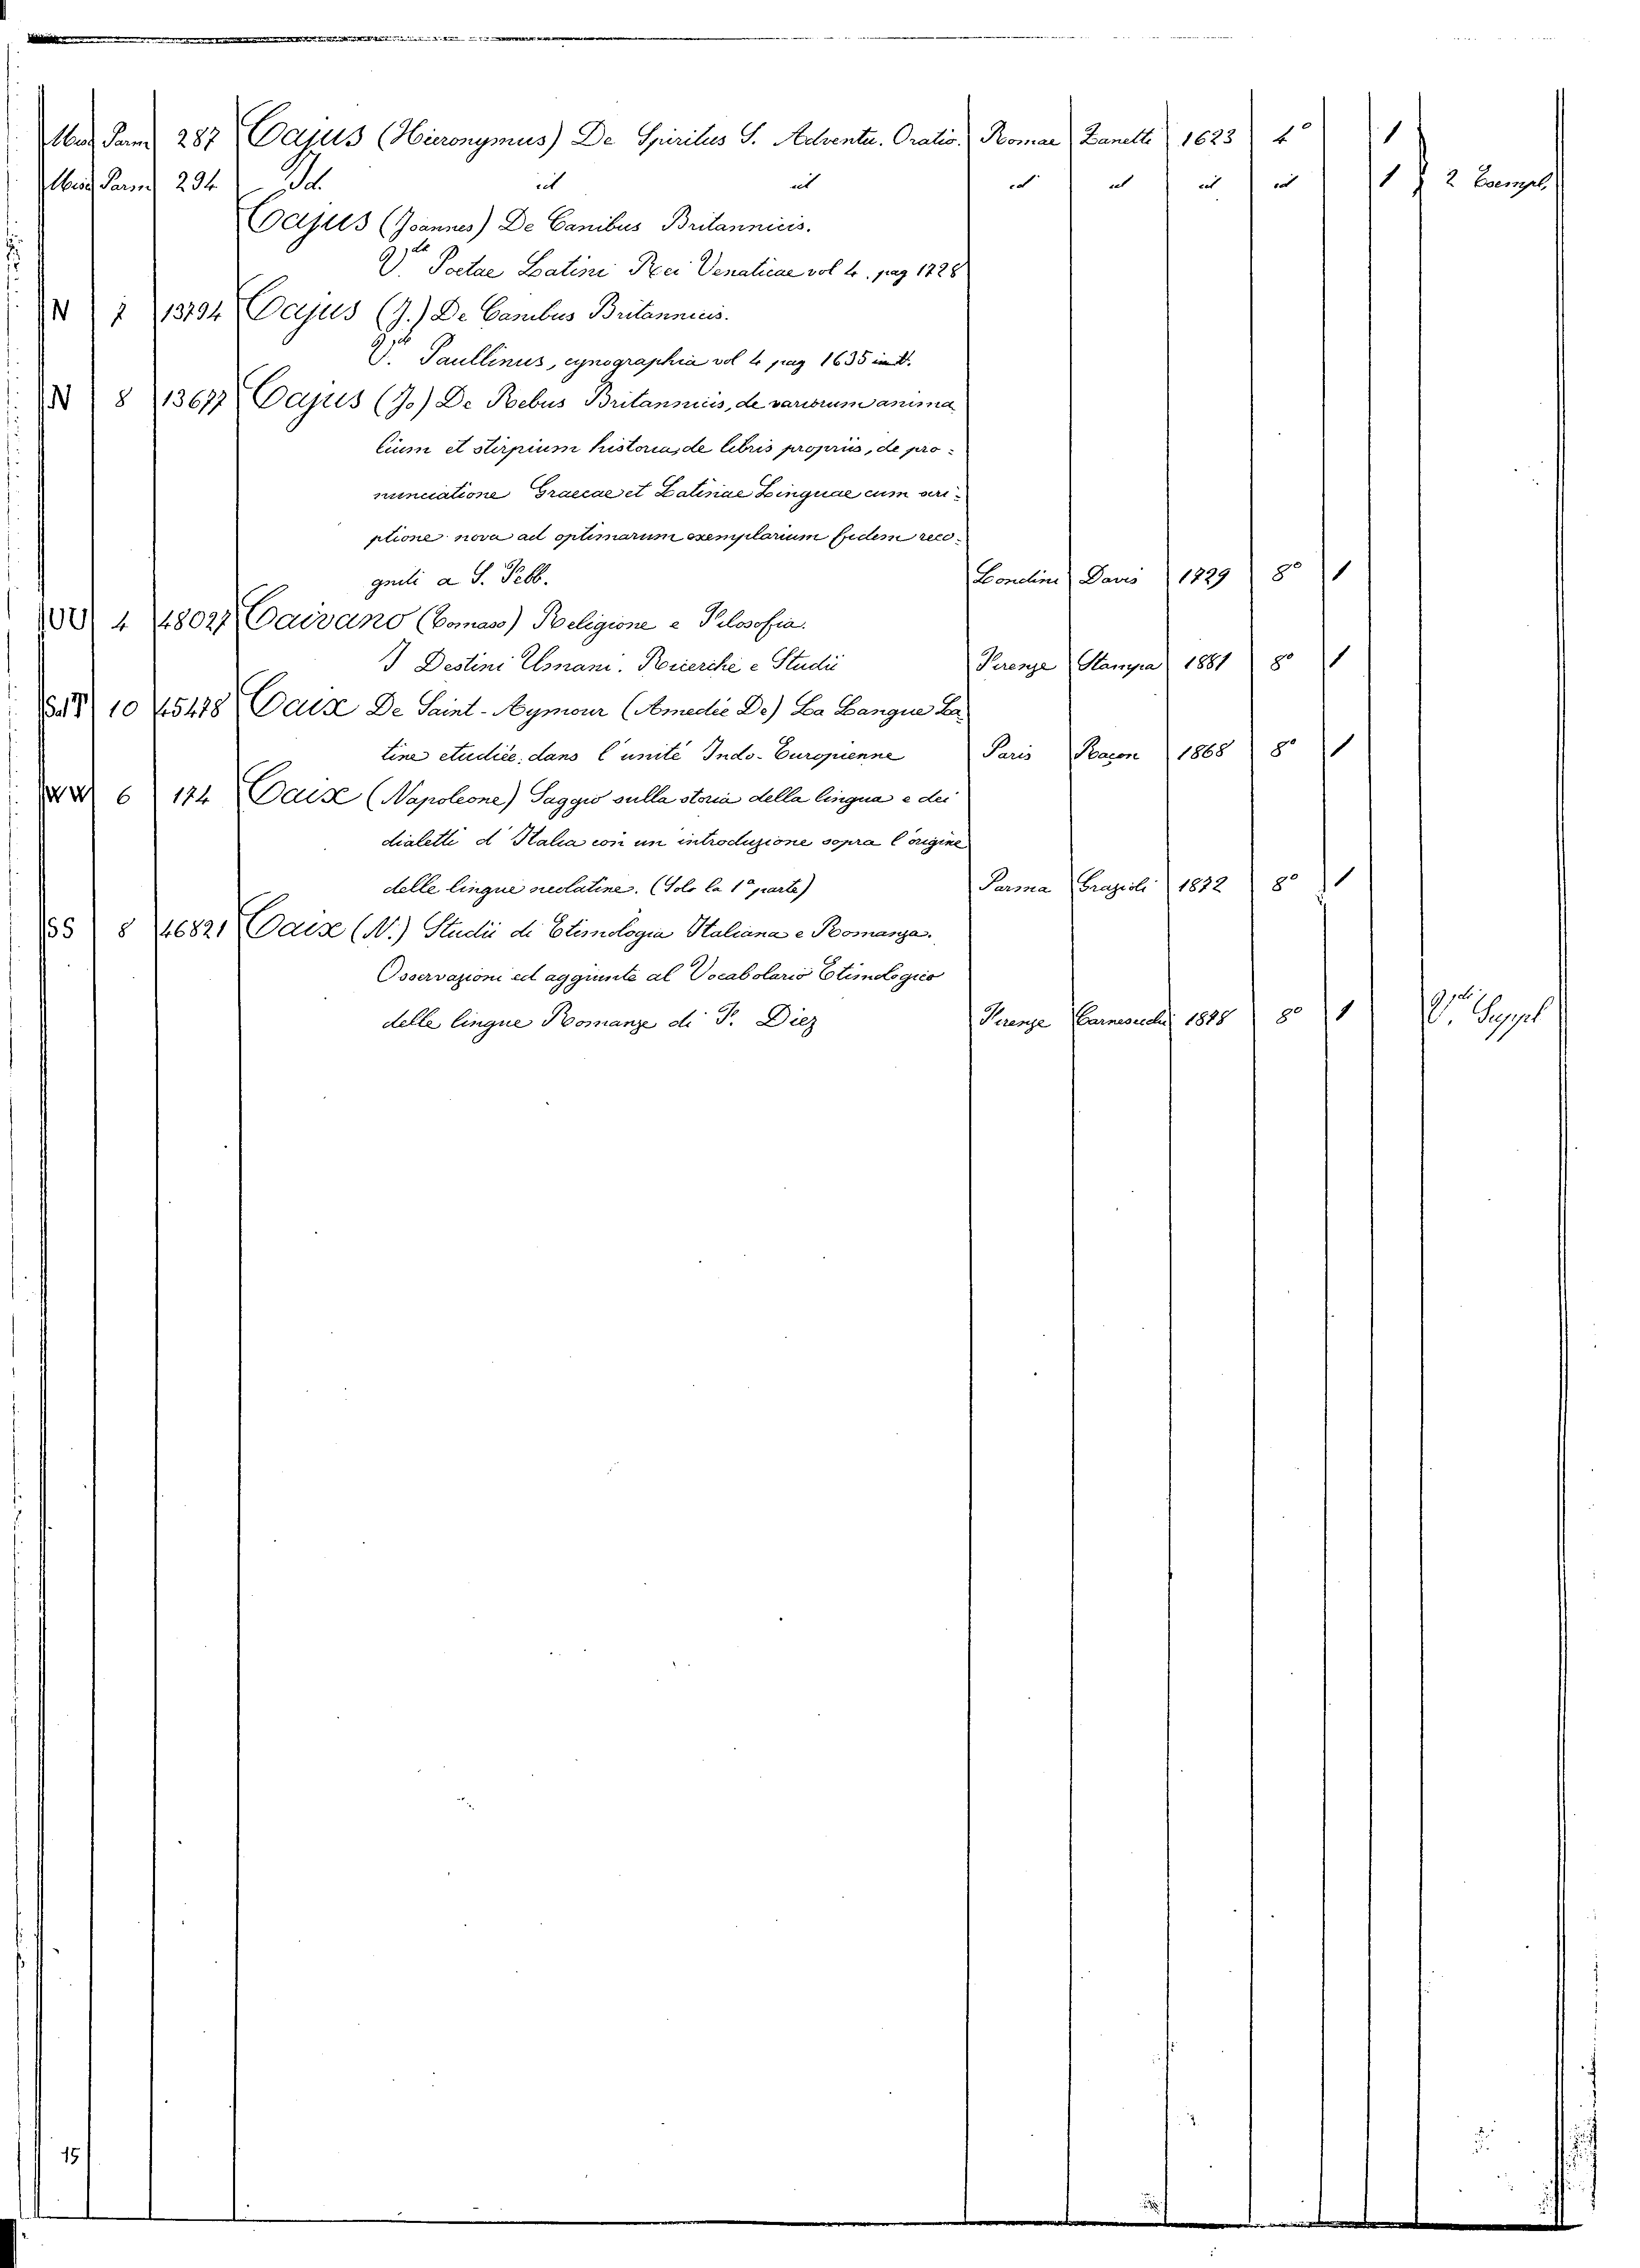 Misc Parm 287 Cajus (Hieronymus) De Spiritus S. Adventu. Oratio. Romae Zanetti 1623 4º 1
Misc Parm 294 Id. id id id id id id 1 } 2 Esempl.
Cajus (Joannes) De Canibus Britannicis.
V.de Poetae Latini Rei Venaticae vol 4. pag 1728
N 7 13794 Cajus (J.) De Canibus Britannicis.
V.de Paullinus, cynographia vol 4 pag 1635 in 4º.
N 8 13677 Cajus (Jo) De Rebus Britannicis, de variorum anima
lium et stirpium historia, de libris propriis, de pro-
nunciatione Graecae et Latinae Linguae cum scri-
ptione nova ad optimarum exemplarium fidem reco-
gniti a S. Jebb. Londini Davis 1729 8º 1
4 48027 Caivano (Tomaso) Religione e Filosofia.
I Destini Umani. Ricerche e Studii Firenze Stampa 1881 8º 1
10 45478 Caix De Saint-Aymour (Amedée De) La Langue La-
tine etudiée dans l'unité Indo-Européenne Paris Racon 1868 8º 1
6 174 Caix (Napoleone) Saggio sulla storia della lingua e dei
dialetti d'Italia con un introduzione sopra l'origine
delle lingue neolatine. (Solo la 1ª parte) Parma Grazioli 1872 8º 1
SS 8 46821 Caix (N.) Studii di Etimologia Italiana e Romanza.
Osservazioni ed aggiunte al Vocabolario Etimologico
delle lingue Romanze di F. Diez Firenze Carnesecchi 1878 8º 1 V.di Suppl
15